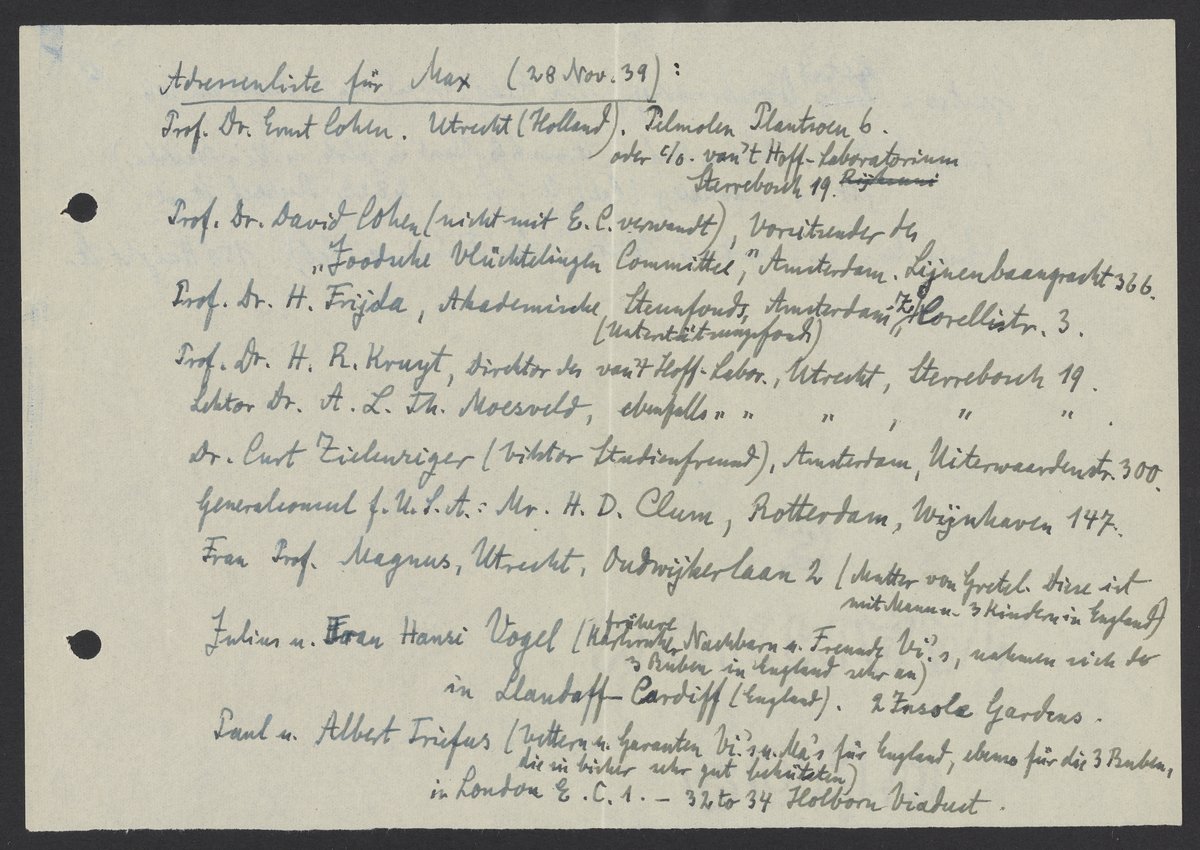 Adressenliste für Max (28 Nov. 39):
Prof. Dr. Ernst Cohen. Utrecht (Holland). Pelmolen Plantsoen 6.
oder c/o. van't Hoff-Laboratorium
Sterrebosch 19.
Prof. Dr. David Cohen (nicht mit E. C. verwandt), Vorsitzender des
„Joodsche Vluchtelingen Committee," Amsterdam. Lijnenbaangracht 366.
Prof. Dr. H. Frijda, Akademische Steunfonds, Amsterdam Z, Horellistr. 3.
(Unterstützungsfond)
Prof. Dr. H. R. Kruyt, Direktor des van't Hoff-Labor., Utrecht, Sterrebosch 19.
Lektor Dr. A. L. Th. Moesveld, ebenfalls " " " , " " .
Dr. Curt Zielenziger (Viktor Studienfreund), Amsterdam, Uiterwaardenstr. 300.
Generalconsul f. U.S.A.: Mr. H. D. Clum, Rotterdam, Wijnhaven 147.
Frau Prof. Magnus, Utrecht, Oudwijkerlaan 2 (Mutter von Gretel. Diese ist
mit Mann u. 3 Kindern in England)
Julius u. Frau Hansi Vogel (frühere Karlsruher Nachbarn u. Freunde Vi's, nahmen sich der
3 Buben in England sehr an)
in Llandaff-Cardiff (England). 2 Insole Gardens.
Paul u. Albert Triefus (Vettern u. Garanten Vi's u. Ma's für England, ebenso für die 3 Buben,
die sie bisher sehr gut behüteten)
in London E. C. 1. – 32 to 34 Holborn Viaduct.